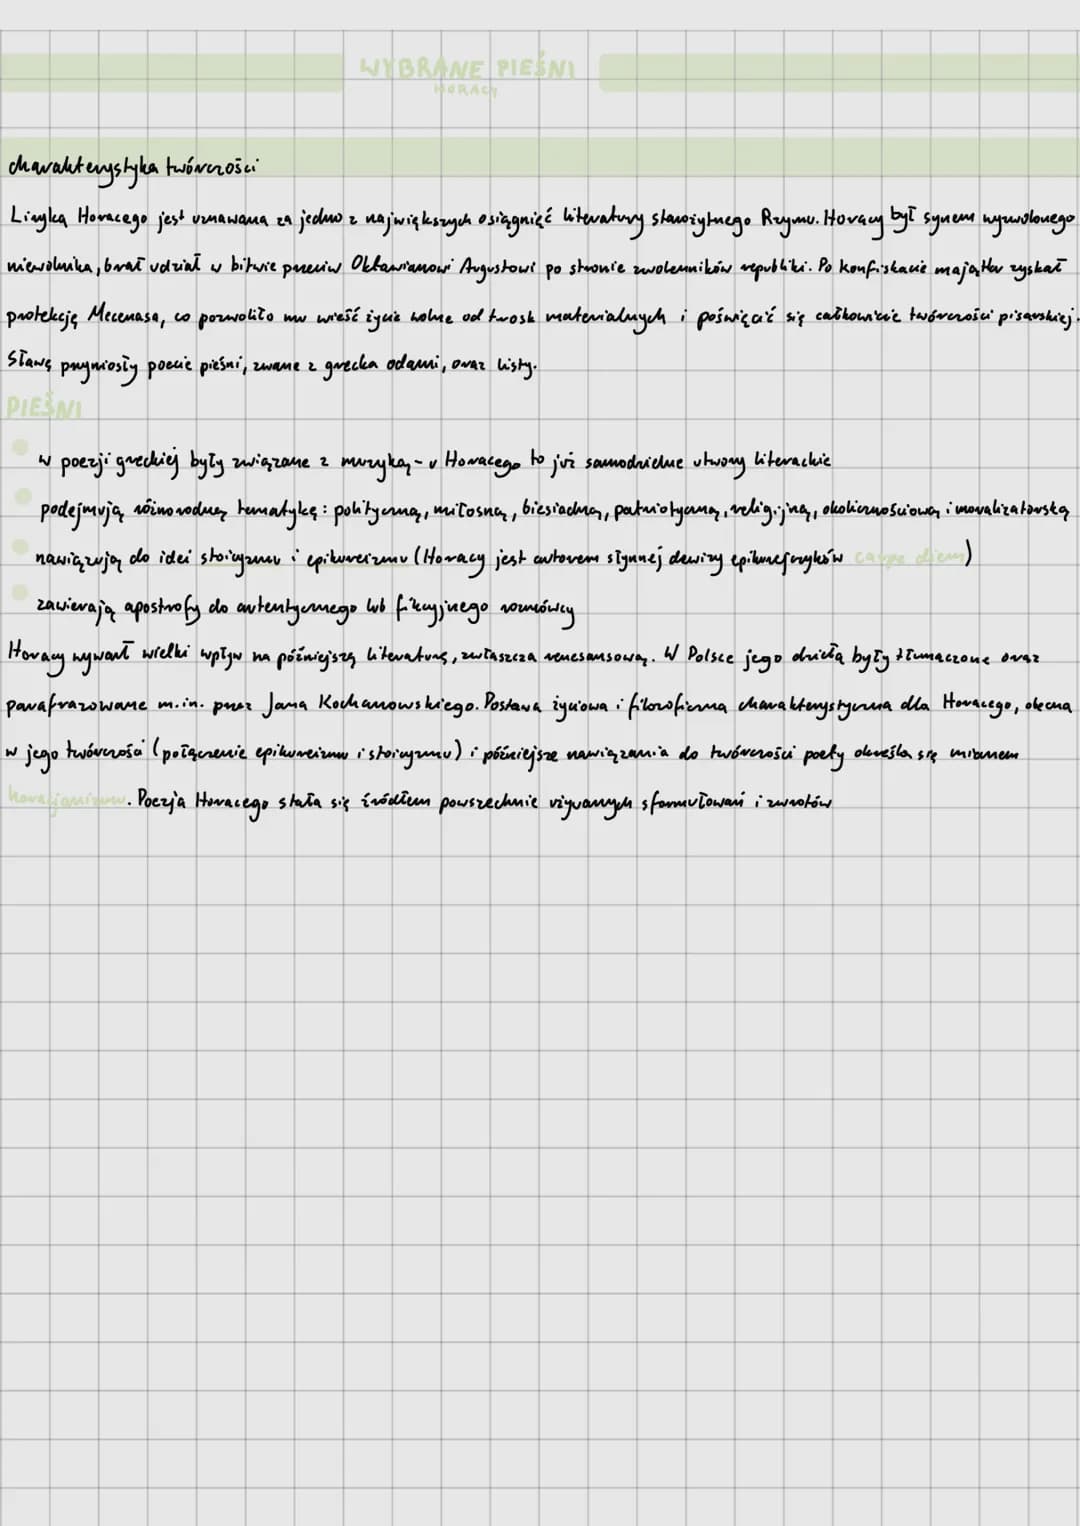 WYBRANE PIEŚNI
HORACY
charakterystyka twórczości
Liryka Horacego jest uznawana za jedno z największych osiągnięć literatury starożytnego Rzymu. Horacy był synem wyzwolonego
niewolnika, brał udział w bitwie przeciw Oktawianowi Augustowi po stronie zwolenników republiki. Po konfiskacie majątku zyskał
protekcję Mecenasa, co pozwoliło mu wieść życie wolne od trosk materialnych i poświęcić się całkowicie twórczości pisarskiej.
Sławę przyniosły poecie pieśni, zwane z grecka odami, oraz listy.
PIEŚNI
w poezji greckiej były związane z muzyką - u Horacego to już samodzielne utwory literackie
podejmują różnorodną tematykę: polityczną, miłosną, biesiadną, patriotyczną, religijną, okolicznościową i moralizatorską
nawiązują do idei stoicyzmu i epikureizmu (Horacy jest autorem słynnej dewizy epikurejczyków carpe diem)
zawierają apostrofy do autentycznego lub fikcyjnego rozmówcy
Horacy wywarł wielki wpływ na późniejszą literaturę, zwłaszcza renesansową. W Polsce jego dzieła były tłumaczone oraz
parafrazowane m.in. przez Jana Kochanowskiego. Postawa życiowa i filozoficzna charakterystyczna dla Horacego, obecna
w jego twórczości (połączenie epikureizmu i stoicyzmu) i późniejsze nawiązania do twórczości poety określa się mianem
horacjanizmu. Poezja Horacego stała się źródłem powszechnie używanych sformułowań i zwrotów